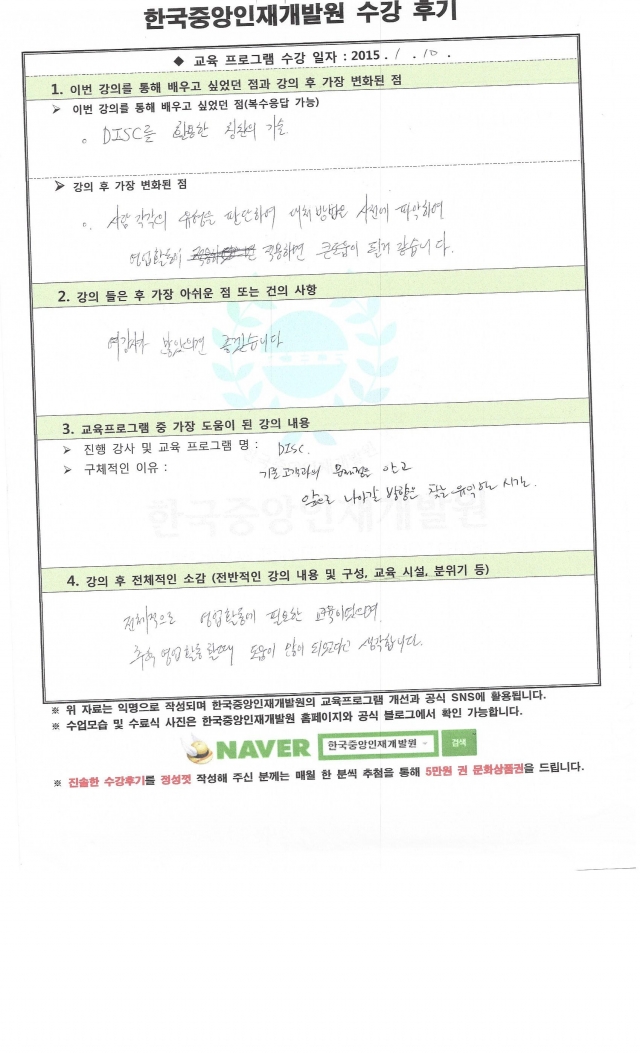 한국중앙인재개발원 수강 후기
◆ 교육 프로그램 수강 일자 : 2015 . 1 . 10 .
1. 이번 강의를 통해 배우고 싶었던 점과 강의 후 가장 변화된 점
➤ 이번 강의를 통해 배우고 싶었던 점(복수응답 가능)
o DISC를 활용한 기술
➤ 강의 후 가장 변화된 점
o. 사람 각각의 유형을 판단하여 대처방법은 사전에 파악하여
영업활동에 적용하면 큰도움이 될거 같습니다.
2. 강의 들은 후 가장 아쉬운 점 또는 건의 사항
여강사가 많았으면 좋겠습니다
3. 교육프로그램 중 가장 도움이 된 강의 내용
➤ 진행 강사 및 교육 프로그램 명 : DISC.
➤ 구체적인 이유 : 기존고객과의 문제점을 안고
앞으로 나아갈 방향은 찾는 유익한 시간.
한국중앙인재개발원
4. 강의 후 전체적인 소감 (전반적인 강의 내용 및 구성, 교육 시설, 분위기 등)
전체적으로 영업활동에 필요한 교육이였으며,
추후 영업활동할때 도움이 많이 되으리라고 생각합니다.
※ 위 자료는 익명으로 작성되며 한국중앙인재개발원의 교육프로그램 개선과 공식 SNS에 활용됩니다.
※ 수업모습 및 수료식 사진은 한국중앙인재개발원 홈페이지와 공식 블로그에서 확인 가능합니다.
NAVER 한국중앙인재개발원 검색
※ 진솔한 수강후기를 정성껏 작성해 주신 분께는 매월 한 분씩 추첨을 통해 5만원 권 문화상품권을 드립니다.